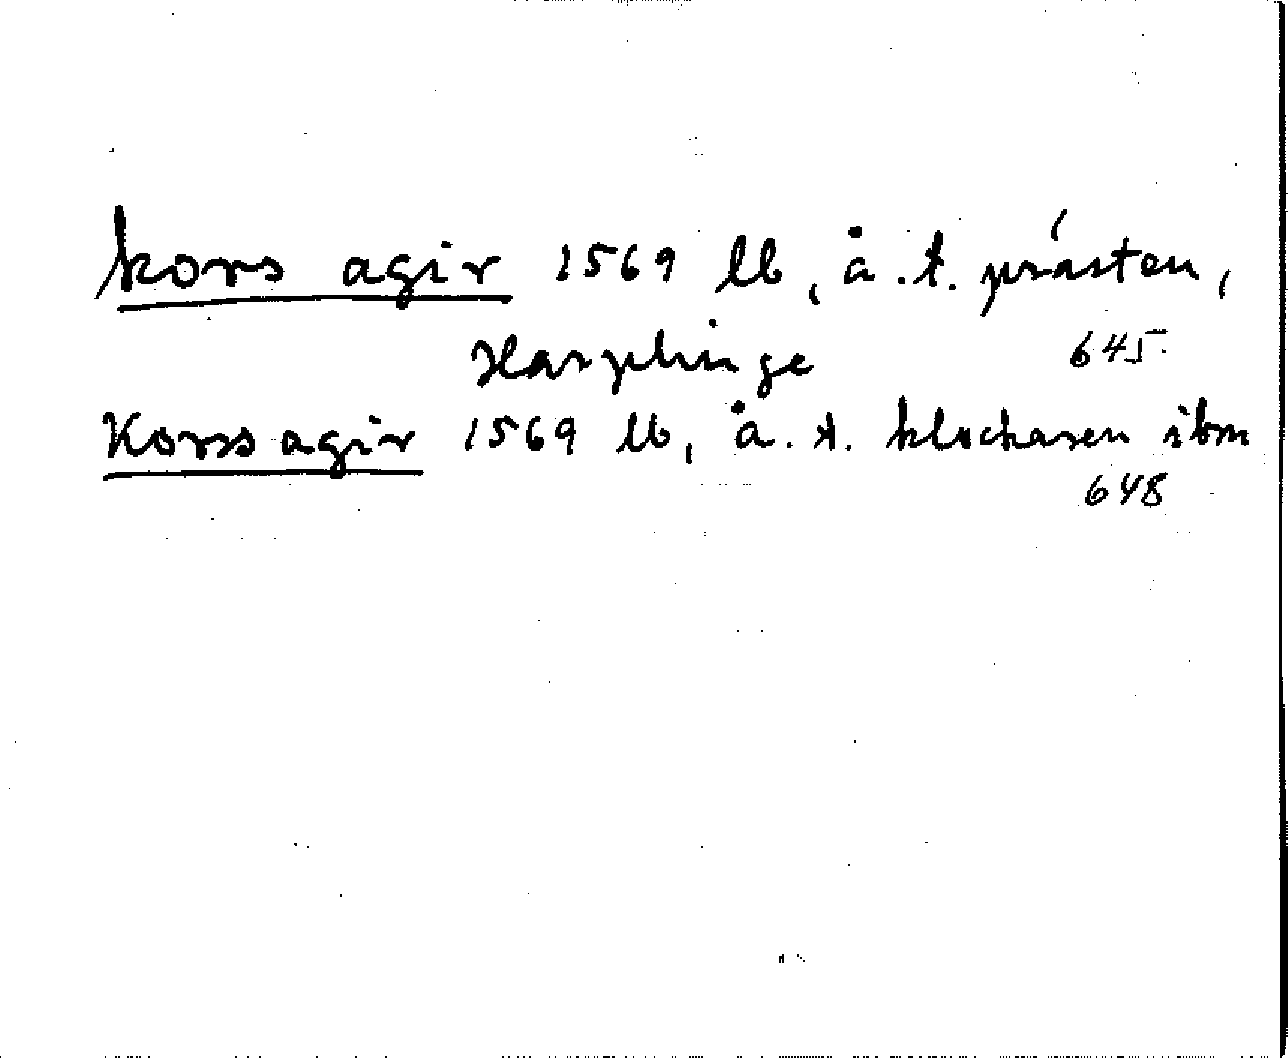 kors agir 1569 lb, å.t. prästen,
Harplinge 645
Korss agir 1569 lb, å.t. klockaren ibm
648